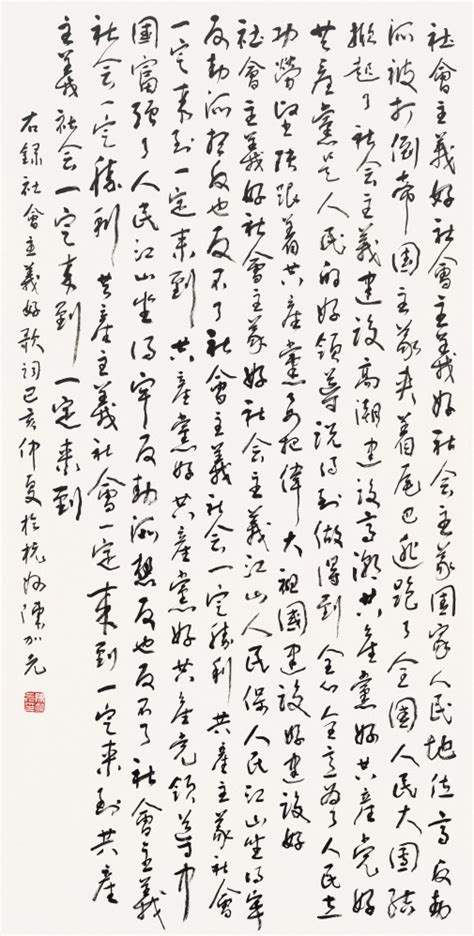 社會主義好社會主義好社会主义國家人民地位高反動
派被打倒帝國主义夹着尾巴逃跑了全國人民大團结
掀起了社会主義建设高潮建设高潮共產黨好共產党好
共產黨是人民的好領導說得到做得到全心全意为了人民立
功勞堅决跟着共產黨要把偉大祖國建设好建设好
社會主義好社會主义好社会主義江山人民保人民江山坐得牢
反動派想反也反不了社會主義社会一定勝利共產主义社會
一定来到一定来到共產黨好共產黨好共產党領導中
國富强了人民江山坐得牢反動派想反也反不了社會主義
社会一定勝利共產主義社會一定来到一定来到共產
主義社会一定来到一定来到
右録社會主義好歌詞己亥仲夏於杭州陳加元